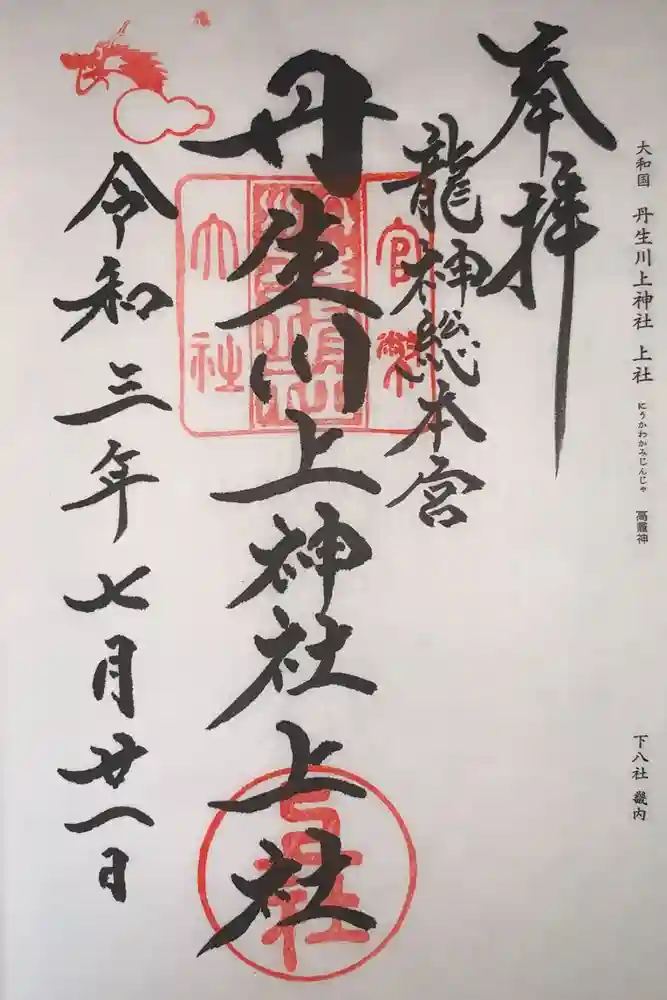 大和国 丹生川上神社 上社
にうかわかみじんじゃ 高龗神
下八社 畿内
奉拝
龍神総本宮
丹生川上神社上社
令和三年七月廿一日
官幣
大社
上社